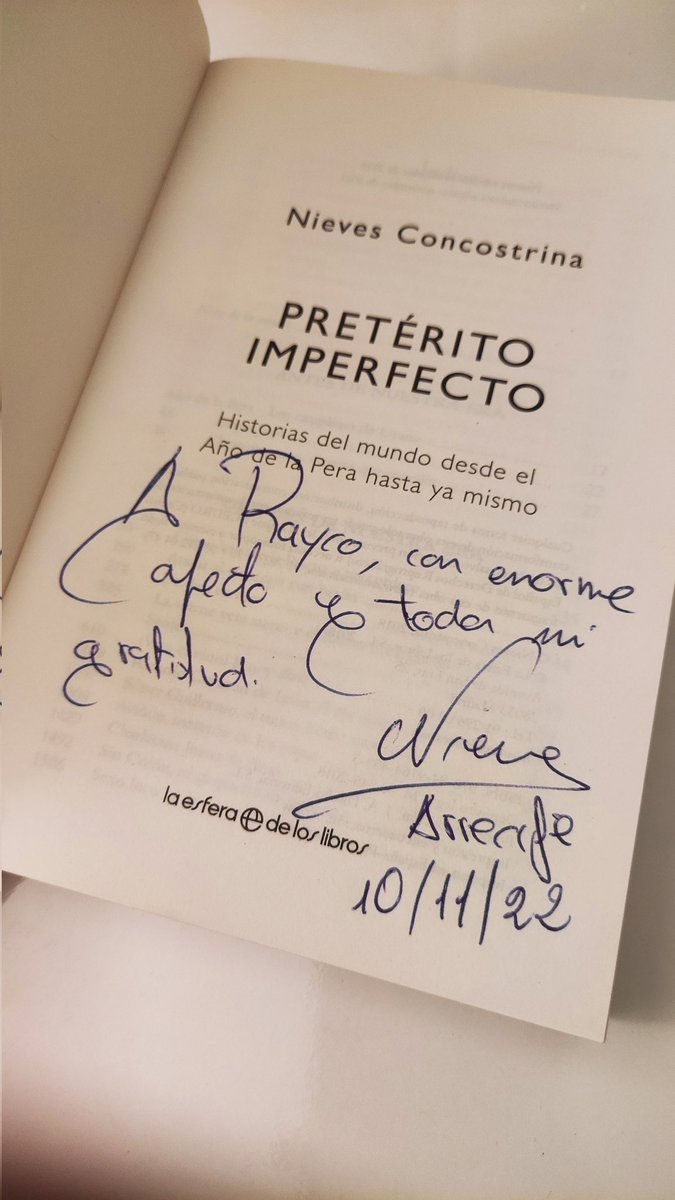 Nieves Concostrina
PRETÉRITO
IMPERFECTO
Historias del mundo desde el
Año de la Pera hasta ya mismo
A Rayco, con enorme
afecto y toda mi
gratitud.
Nieves
Arrecife
10/11/22
la esfera de los libros